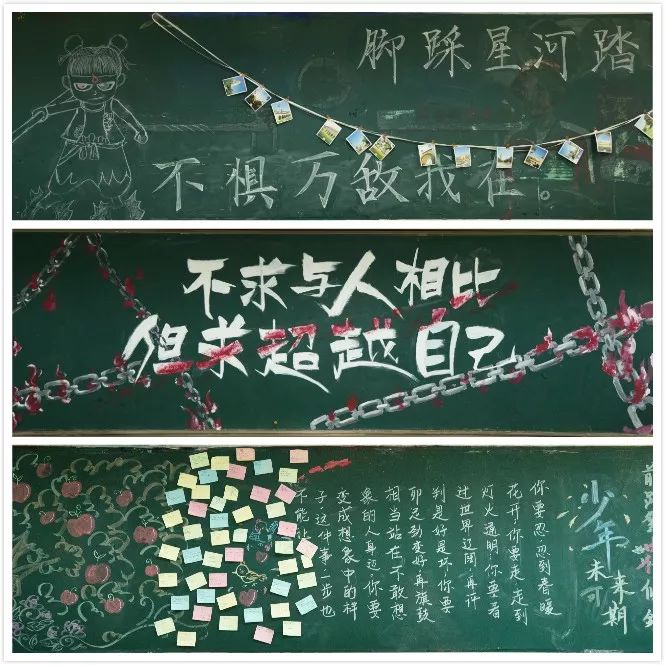 脚踩星河踏
不惧万敌我在。
不求与人相比
但求超越自己
少年
未来
可期
你要忍,忍到春暖
花开;你要走,走到
灯火通明;你要看
过世界辽阔,再评
判是好是坏;你要
卯足劲变好,再旗鼓
相当站在不敢想
象的人身边;你要
变成想象中的样
子,这件事,一步也
不能让